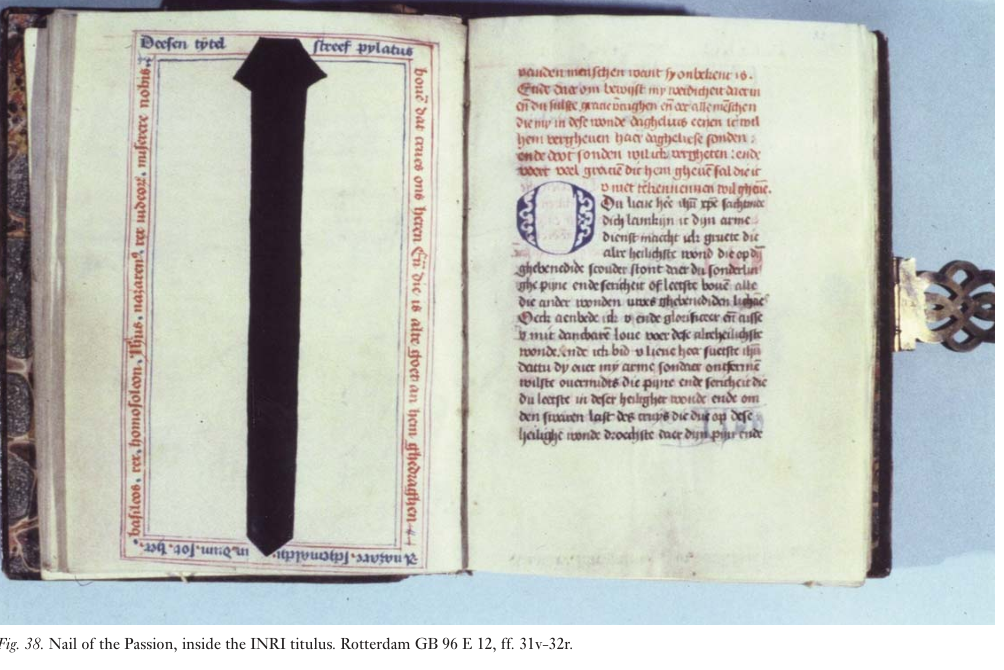 Deesen tytel screef pylatus
bouē dat cruces ons heren Eñ die is alte goet an hem ghedraghen
basileos, rex, homosoleon, Jhūs, nazaren⁹, rex iudeoꝝ, miserere nobis,
vanden menschen want sy onbekent is.
Ende daer om bewijst my
die my in dese wonde daghelics eeren ic wil
hem vergheuen haer daghelicse sonden :
ende doot sonden wil ick vergheten : ende
voert veel gracien dit hem gheuē sal die it
v niet rekenen
O du lieue hēr ihū xp̄e sachtmoe
dich lamkijn ic dijn arme
dienst macht ick gruete die
alre heilichste wond die op dӯ
ghebenedide scouder stont daer du sonderlin
ghe pijne ende sericheit of leetste bouē alle
die ander wonden uwes ghebenediden lichaē
Oeck aenbede ick v ende glorificeer eñ
v mit danckbarē loue voer dese alreheilichste
wonde, ende ich bid v lieue heer suetste ihū
dattu dy ouer my arme sondaer ontfermē
wilste ouermids die pijne ende sericheit die
du leetste in deser heiligher wonde ende om
den swaren last des cruys die du op dese
heilighe wonde droechste daer dijn pijn ende
Fig. 38. Nail of the Passion, inside the INRI titulus. Rotterdam GB 96 E 12, ff. 31v–32r.